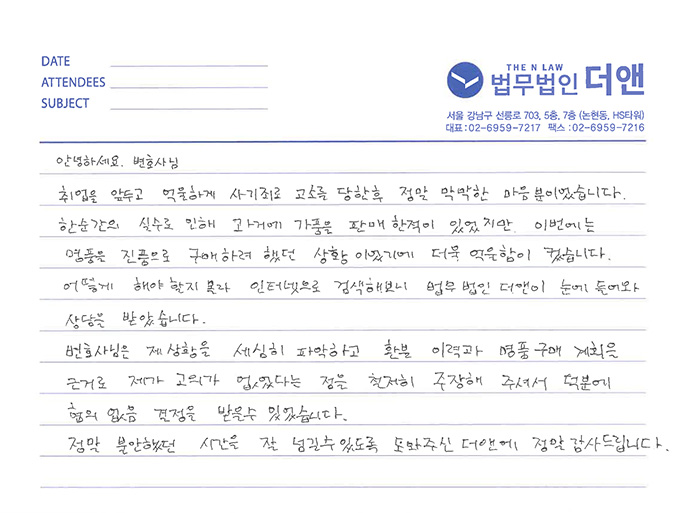 DATE
ATTENDEES
SUBJECT
THE N LAW
법무법인 더앤
서울 강남구 선릉로 703, 5층, 7층 (논현동, HS타워)
대표 : 02-6959-7217 팩스 : 02-6959-7216
안녕하세요. 변호사님
취업을 앞두고 억울하게 사기죄로 고소를 당한후 정말 막막한 마음뿐이었습니다.
한순간의 실수로 인해 과거에 가품을 판매한적이 있었지만 이번에는
명품을 진품으로 구매하려 했던 상황이었기에 더욱 억울함이 컸습니다.
어떻게 해야 한지 몰라 인터넷으로 검색해보니 법무법인 더앤이 눈에 들어와
상담을 받았습니다.
변호사님은 제상황을 세심히 파악하고 환불 이력과 명품구매 계획을
근거로 제가 고의가 없었다는 점을 철저히 주장해 주셔서 덕분에
혐의 없음 결정을 받을수 있었습니다.
정말 불안했던 시간을 잘 넘길수있도록 도와주신 더앤에 정말감사드립니다.